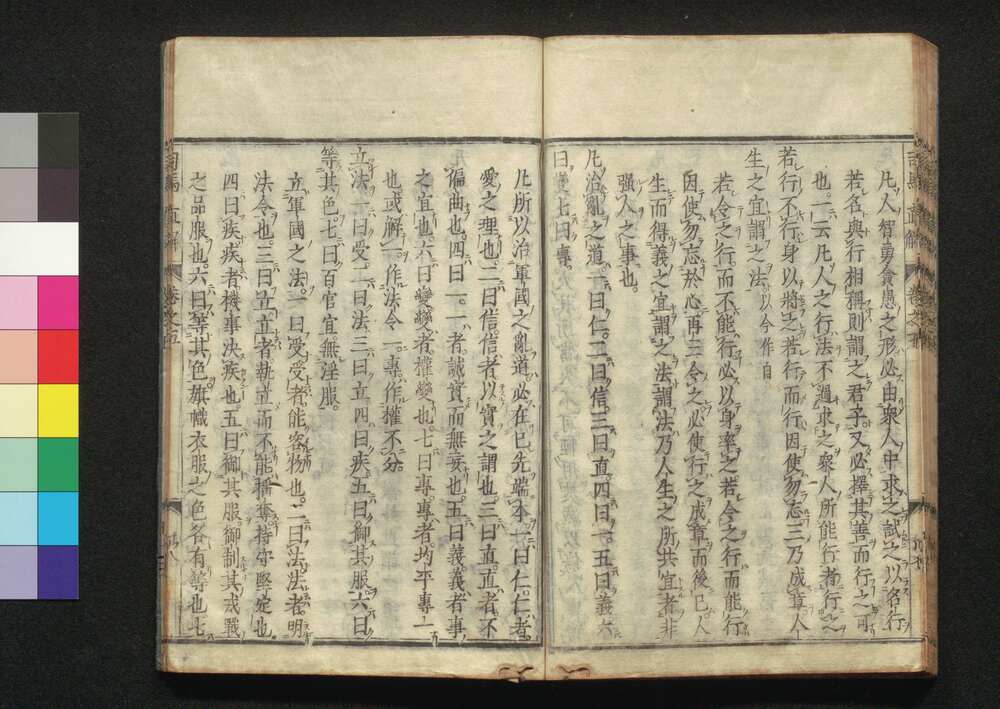 凡人智勇貪愚之形必由衆人中求之試之以名行
若名與行相稱則謂之君子又必擇其善而行之可
也一云凡人之行法不過求之衆人所能行者行之
若行不行身以將之若行而行因使勿忘三乃成章人
生之宜謂之法 以今作自
若令之行而不能行必以身率之若令之行而能行
因使勿忘於心再三令之必使行之成章而後已人
生而得義之宜謂之法謂法乃人生之所共宜者非
强人之事也
凡治亂之道一曰仁二曰信三曰直四曰一五曰義六
曰變七曰專
凡所以治軍國之亂道必在已先端本一曰仁仁者
愛之理也二曰信信者以實之謂也三曰直直者不
偏曲也四曰一一者誠實而無妄也五曰義義者事
之宜也六曰變變者權變也七曰專專者均平專一
也或解一作法令一專作權不分
立法一曰受二曰法三曰立四曰疾五曰御其服六曰
等其色七曰百官宜無淫服
立軍國之法一曰受受者能容物也二曰法法者明
法令也三曰立立者執立而不能搖奪持守堅定也
四曰疾疾者機事決疾也五曰御其服御制其戎戰
之品服也六曰等其色旗幟衣服之色各有等也七